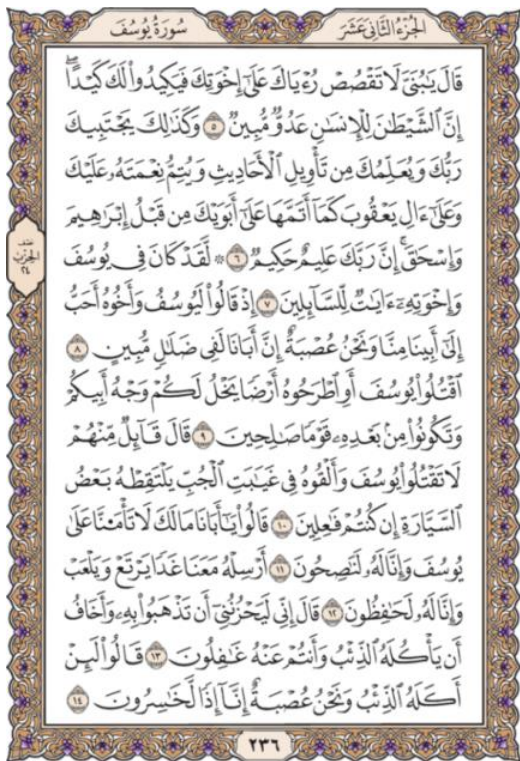 الجزء الثاني عشر
سورة يوسف
قَالَ يَٰبُنَيَّ لَا تَقۡصُصۡ رُءۡيَاكَ عَلَىٰٓ إِخۡوَتِكَ فَيَكِيدُواْ لَكَ كَيۡدًاۖ
إِنَّ ٱلشَّيۡطَٰنَ لِلۡإِنسَٰنِ عَدُوّٞ مُّبِينٞ ٥ وَكَذَٰلِكَ يَجۡتَبِيكَ
رَبُّكَ وَيُعَلِّمُكَ مِن تَأۡوِيلِ ٱلۡأَحَادِيثِ وَيُتِمُّ نِعۡمَتَهُۥ عَلَيۡكَ
وَعَلَىٰٓ ءَالِ يَعۡقُوبَ كَمَآ أَتَمَّهَا عَلَىٰٓ أَبَوَيۡكَ مِن قَبۡلُ إِبۡرَٰهِيمَ
وَإِسۡحَٰقَۚ إِنَّ رَبَّكَ عَلِيمٌ حَكِيمٞ ٦ ۞ لَّقَدۡ كَانَ فِي يُوسُفَ
نصف
الحزب
٢٤
وَإِخۡوَتِهِۦٓ ءَايَٰتٞ لِّلسَّآئِلِينَ ٧ إِذۡ قَالُواْ لَيُوسُفُ وَأَخُوهُ أَحَبُّ
إِلَىٰٓ أَبِينَا مِنَّا وَنَحۡنُ عُصۡبَةٌ إِنَّ أَبَانَا لَفِي ضَلَٰلٖ مُّبِينٍ ٨
ٱقۡتُلُواْ يُوسُفَ أَوِ ٱطۡرَحُوهُ أَرۡضٗا يَخۡلُ لَكُمۡ وَجۡهُ أَبِيكُمۡ
وَتَكُونُواْ مِنۢ بَعۡدِهِۦ قَوۡمٗا صَٰلِحِينَ ٩ قَالَ قَآئِلٞ مِّنۡهُمۡ
لَا تَقۡتُلُواْ يُوسُفَ وَأَلۡقُوهُ فِي غَيَٰبَتِ ٱلۡجُبِّ يَلۡتَقِطۡهُ بَعۡضُ
ٱلسَّيَّارَةِ إِن كُنتُمۡ فَٰعِلِينَ ١٠ قَالُواْ يَٰٓأَبَانَا مَا لَكَ لَا تَأۡمَ۬نَّا عَلَىٰ
يُوسُفَ وَإِنَّا لَهُۥ لَنَٰصِحُونَ ١١ أَرۡسِلۡهُ مَعَنَا غَدٗا يَرۡتَعۡ وَيَلۡعَبۡ
وَإِنَّا لَهُۥ لَحَٰفِظُونَ ١٢ قَالَ إِنِّي لَيَحۡزُنُنِيٓ أَن تَذۡهَبُواْ بِهِۦ وَأَخَافُ
أَن يَأۡكُلَهُ ٱلذِّئۡبُ وَأَنتُمۡ عَنۡهُ غَٰفِلُونَ ١٣ قَالُواْ لَئِنۡ
أَكَلَهُ ٱلذِّئۡبُ وَنَحۡنُ عُصۡبَةٌ إِنَّآ إِذٗا لَّخَٰسِرُونَ ١٤
٢٣٦